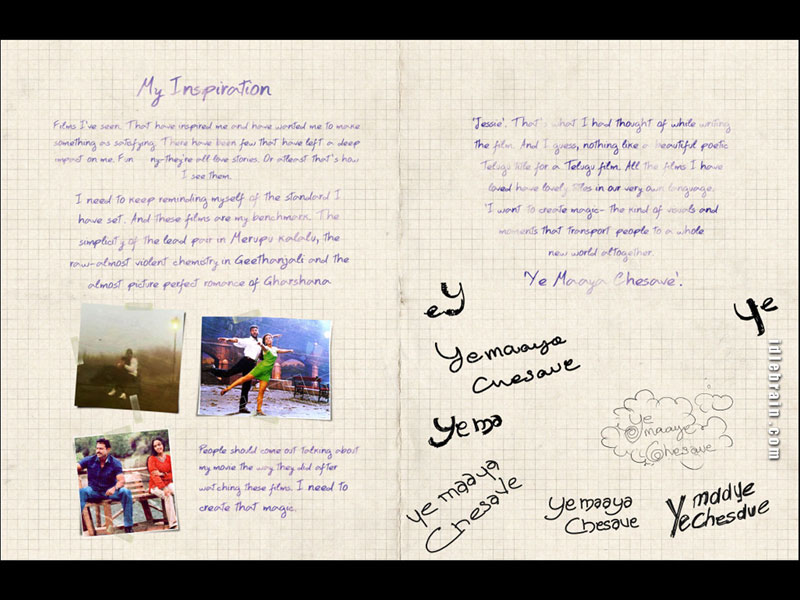 My Inspiration
Films I've seen. That have inspired me and have wanted me to make
something as satisfying. There have been few that have left a deep
impact on me. Fun ny-they're all love stories. Or atleast that's how
I see them.
I need to keep reminding myself of the standard I
have set. And these films are my benchmark. The
simplicity of the lead pair in Merupu kalalu, the
raw-almost violent chemistry in Geethanjali and the
almost picture perfect romance of Gharshana
People should come out talking about
my movie the way they did after
watching these films. I need to
create that magic.
'Jessie'. That's what I had thought of while writing
the film. And I guess, nothing like a beautiful poetic
Telugu title for a Telugu film. All the films I have
loved have lovely titles in our very own language.
'I want to create magic- the kind of visuals and
moments that transport people to a whole
new world altogether.
'Ye Maaya Chesave'.
ey
Ye
Yemaaya
Chesave
Yema
Ye
maaye
Chesave
ye maaya
Chesave
Yemaaya
Chesave
Yemaaye
Chesave
idlebrain.com